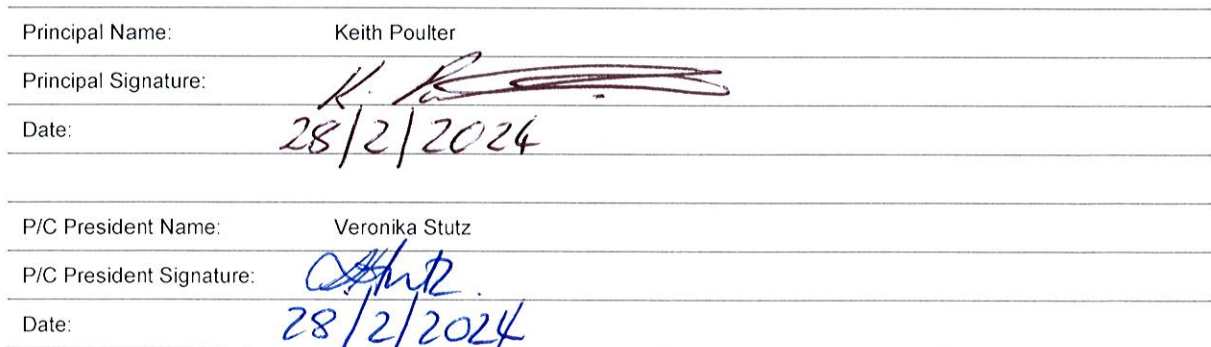 Principal Name: Keith Poulter
Principal Signature: K. P
Date: 28/2/2024
P/C President Name: Veronika Stutz
P/C President Signature: Stutz
Date: 28/2/2024